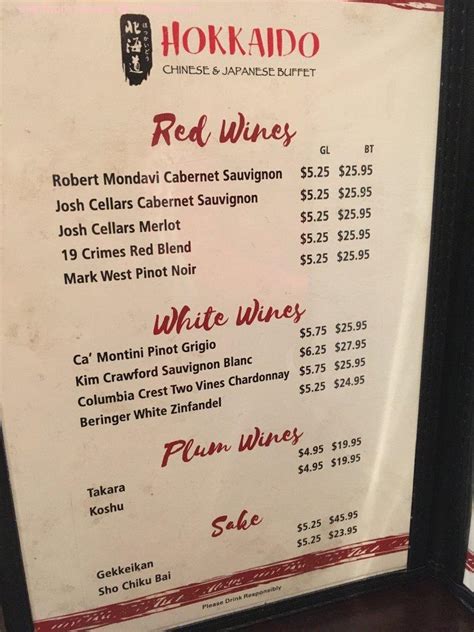 北海道
ほっかいどう
HOKKAIDO
CHINESE & JAPANESE BUFFET
Red Wines
GL BT
Robert Mondavi Cabernet Sauvignon $5.25 $25.95
Josh Cellars Cabernet Sauvignon $5.25 $25.95
Josh Cellars Merlot $5.25 $25.95
19 Crimes Red Blend $5.25 $25.95
Mark West Pinot Noir $5.25 $25.95
White Wines
Ca' Montini Pinot Grigio $5.75 $25.95
Kim Crawford Sauvignon Blanc $6.25 $27.95
Columbia Crest Two Vines Chardonnay $5.75 $25.95
Beringer White Zinfandel $5.25 $24.95
Plum Wines
Takara $4.95 $19.95
Koshu $4.95 $19.95
Sake
Gekkeikan $5.25 $45.95
Sho Chiku Bai $5.25 $23.95
Please Drink Responsibly